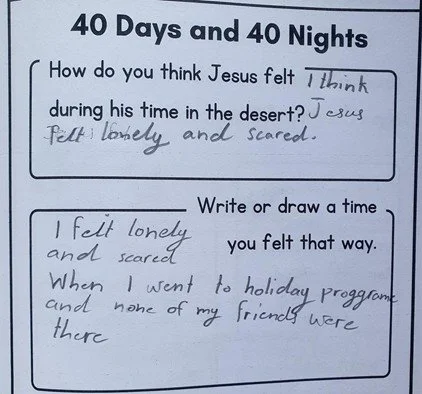 40 Days and 40 Nights
How do you think Jesus felt I think
during his time in the desert? Jesus
felt lonely and scared.
Write or draw a time
I felt lonely
you felt that way.
and scared
When I went to holiday proggrame
and none of my friends were
there